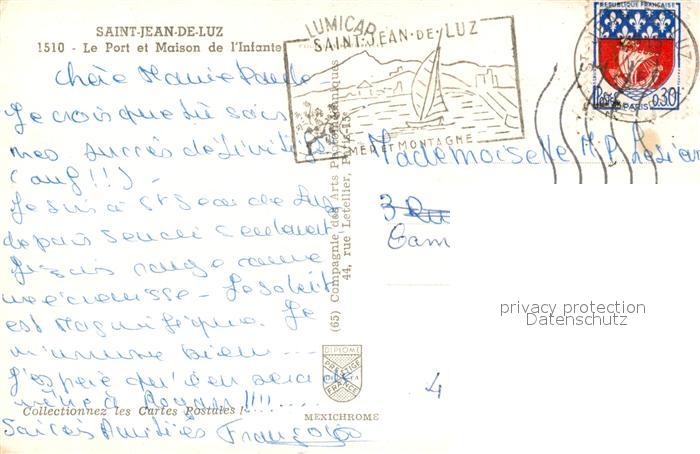 SAINT-JEAN-DE-LUZ
1510 - Le Port et Maison de l'Infante
Chère Marie Paule
Je crois que tu sais
mes succès définitifs
(ouf!!) -
Je suis à St Jean de Luz
depuis
Je suis rouge comme
une écrevisse - Le soleil
est magnifique. Je
m'amuse bien ...
J'espère qu'il en sera de
même à Royan!!!! ....
Amitiés Françoise
Collectionnez les Cartes Postales !
(65) Compagnie des Arts Photomécaniques
44, rue Letellier, Paris-15e
DIPLOME
PRESTIGE
FRANCE
MEXICHROME
LUMICAP
SAINT-JEAN-DE-LUZ
MER ET MONTAGNE
REPUBLIQUE FRANÇAISE
Postes
PARIS
0,30
Mademoiselle M.P.
3 Ru
Cam
4
privacy protection
Datenschutz